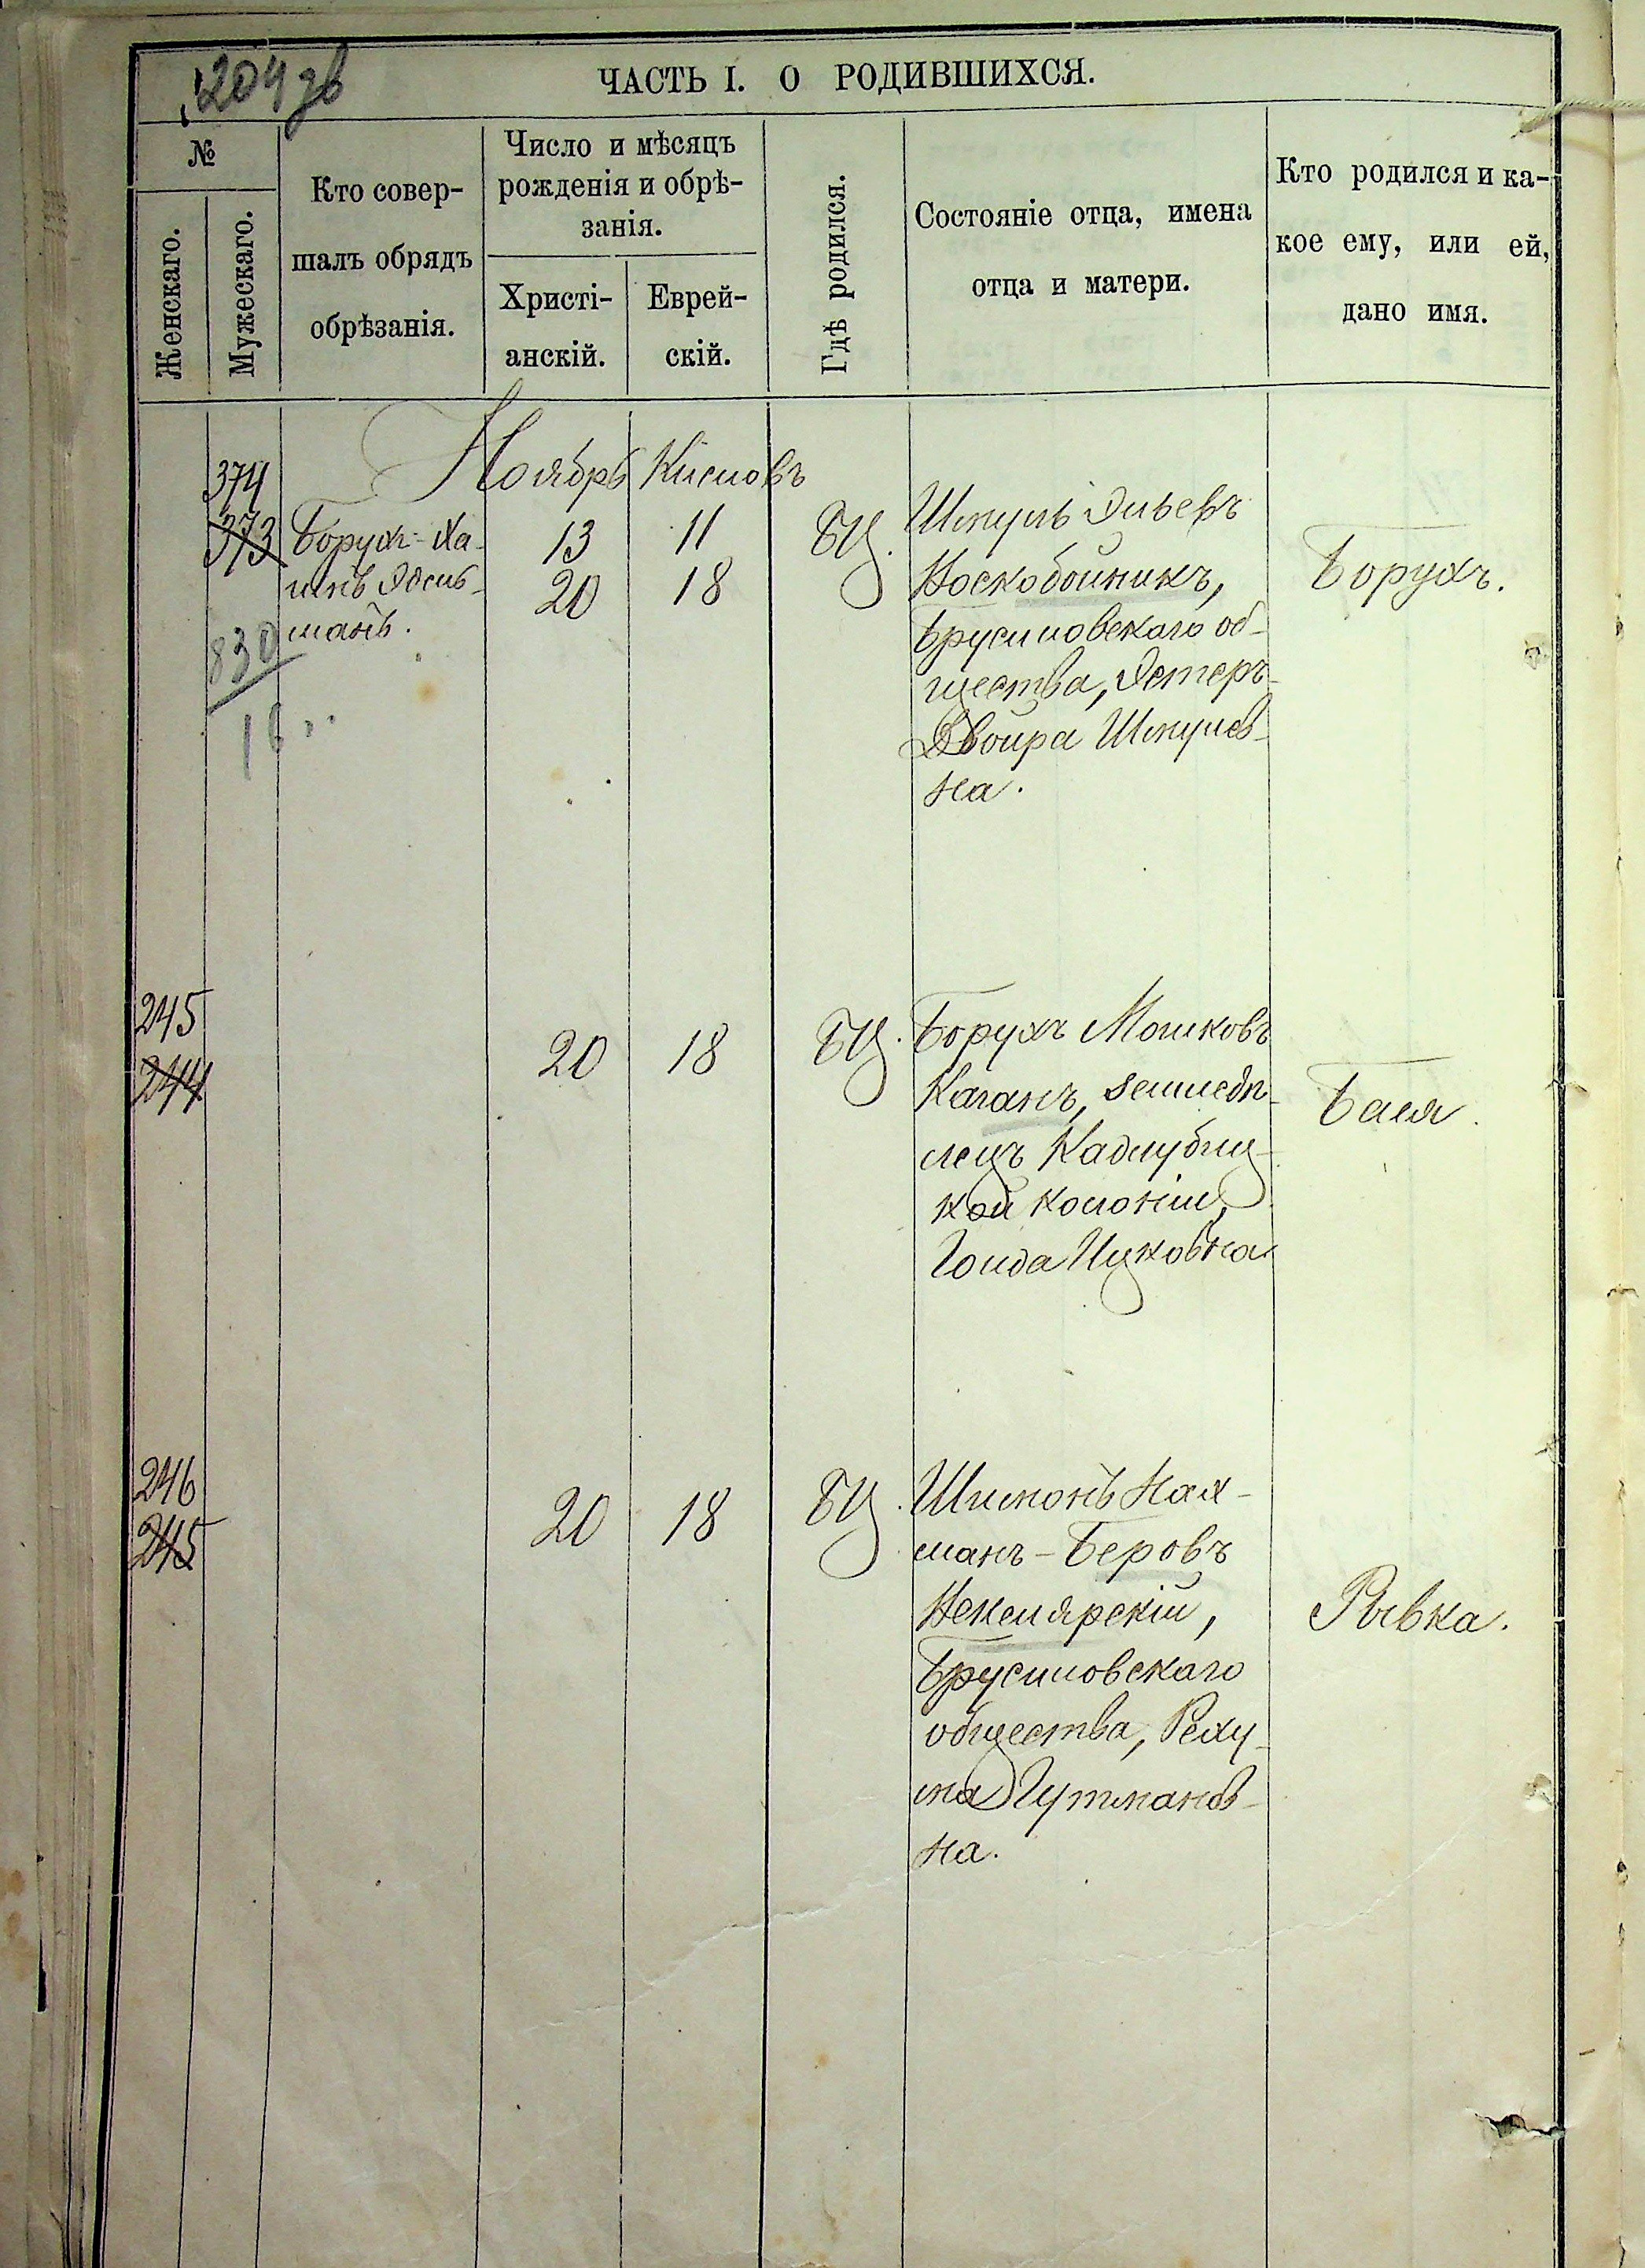 204 зв
ЧАСТЬ I. О РОДИВШИХСЯ.
№
Женскаго.
Мужескаго.
Кто совер-
шалъ обрядъ
обрѣзанія.
Число и мѣсяцъ
рожденія и обрѣ-
занія.
Христі-
анскій.
Еврей-
скій.
Гдѣ родился.
Состояніе отца, имена
отца и матери.
Кто родился и ка-
кое ему, или ей,
дано имя.
Ноябрь Кислов
374
373
Борухъ-Ха-
имъ Эдель-
манъ.
830
16
13
20
11
18
БЦ.
Шмуль Эльевъ
Воскобойникъ,
Брусиловскаго об-
щества, Эстеръ-
Двойра Шмулев-
на.
Борухъ.
245
244
20
18
БЦ.
Борухъ Мошковъ
Каганъ, земледѣ-
лецъ Кадлубиц-
кой колоніи,
Голда Ицковна
Баля.
246
245
20
18
БЦ.
Шимонъ Нах-
манъ-Беровъ
Брусиловскаго
общества, Реху-
ма Гутманов-
на.
Рывка.